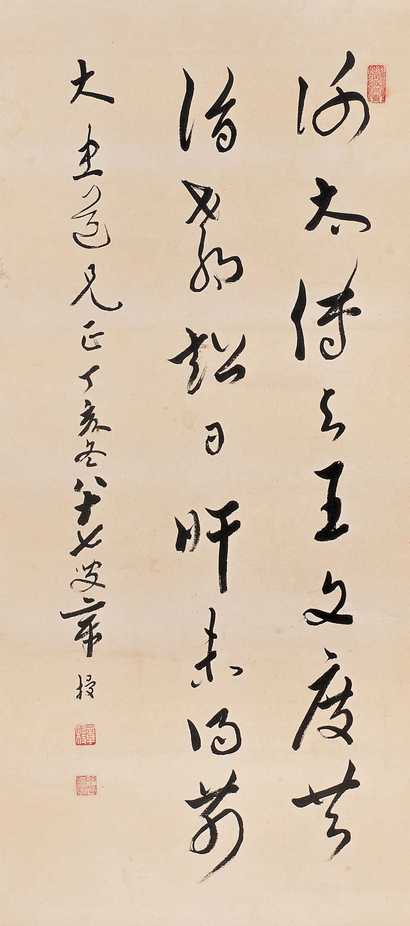 謝太傅與王文度共
詣郗超日旰未得前
大道兄正丁亥冬八十七叟章梫